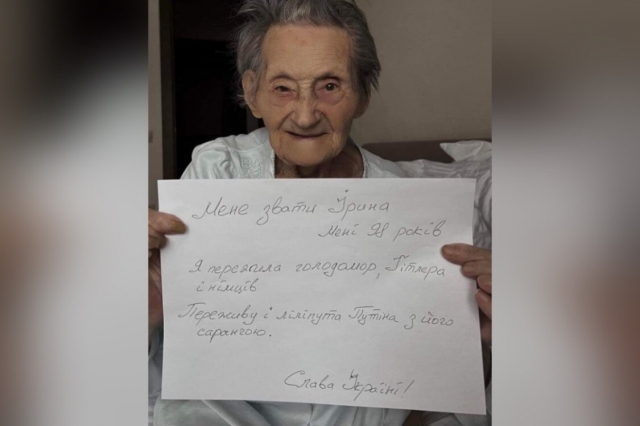 Мене звати Ірина
Мені 98 років
Я пережила голодомор, Гітлера
і німців
Переживу і ліліпута Путіна з його
сарангою.
Слава Україні!